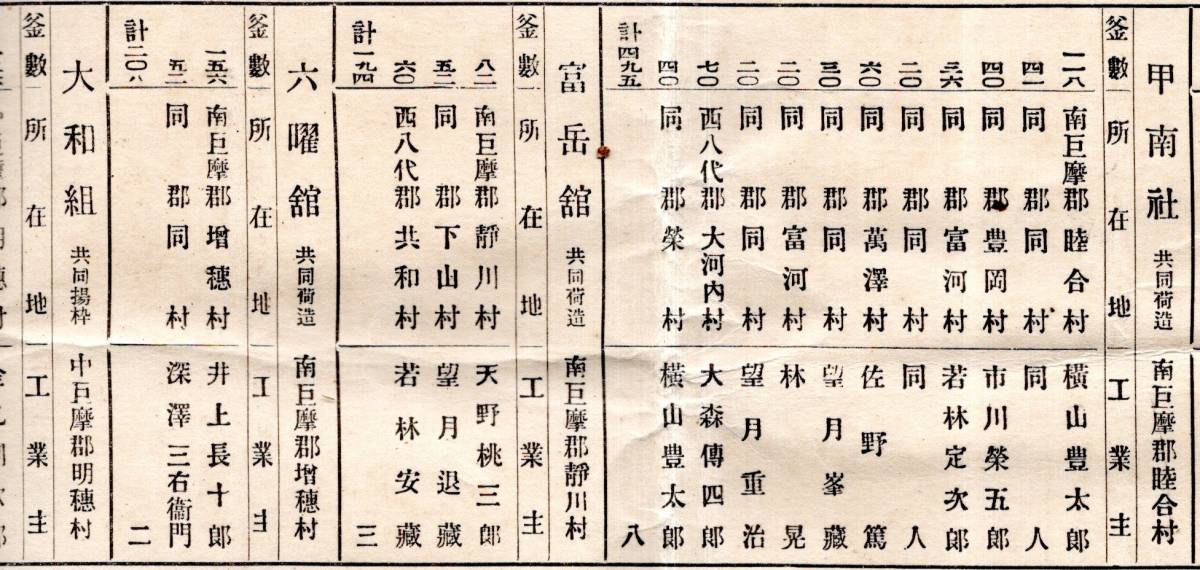 甲南社 共同荷造 南巨摩郡睦合村
釜數 所在地 工業主
一一八 南巨摩郡睦合村 橫山豊太郎
四一 同郡同村 同人
四〇 同郡豊岡村 市川榮五郎
三六 同郡富河村 若林定次郎
二〇 同郡同村 同人
六〇 同郡萬澤村 佐野篤
三〇 同郡同村 望月峯藏
二〇 同郡富河村 林晃
二〇 同郡同村 望月重治
七〇 西八代郡大河内村 大森傳四郎
四〇 同郡榮村 橫山豊太郎
計四九五 八
富岳舘 共同荷造 南巨摩郡靜川村
釜數 所在地 工業主
八二 南巨摩郡靜川村 天野桃三郎
五二 同郡下山村 望月退藏
六〇 西八代郡共和村 若林安藏
計一九四 三
六曜舘 共同荷造 南巨摩郡增穗村
釜數 所在地 工業主
一五六 南巨摩郡增穗村 井上長十郎
五二 同郡同村 深澤三右衞門
計二〇八 二
大和組 共同揚枠 中巨摩郡明穗村
釜數 所在地 工業主